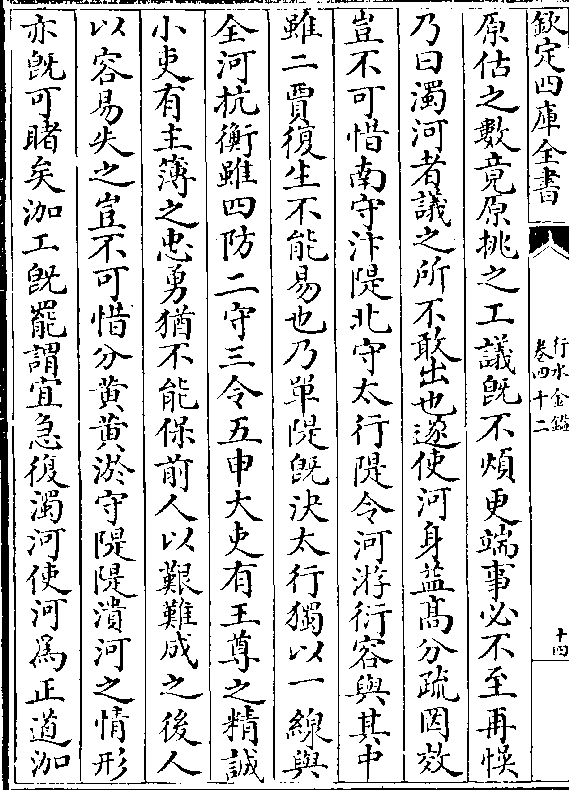 欽定四庫全書
行水金鑑
卷四十二
十四
原估之數竟原挑之工議既不煩更端事必不至再悞
乃曰濁河者議之所不敢出也遂使河身益髙分疏罔效
豈不可惜南守汴隄北守太行隄令河游衍容與其中
雖二賈復生不能易也乃單隄既決太行獨以一線與
全河抗衡雖四防二守三令五申大吏有王尊之精誠
小吏有主簿之忠勇猶不能保前人以艱難成之後人
以容易失之豈不可惜分黄黄淤守隄隄潰河之情形
亦既可睹矣泇工既罷謂宜急復濁河使河為正道泇